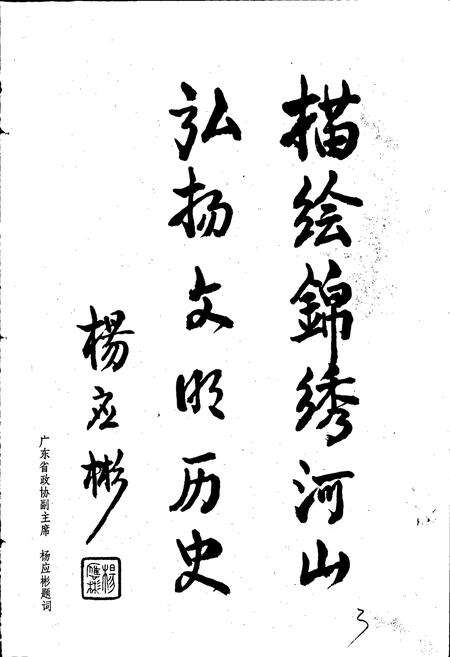 描绘錦绣河山
弘扬文明历史
楊应彬
楊應彬
广东省政协副主席 杨应彬题词
3